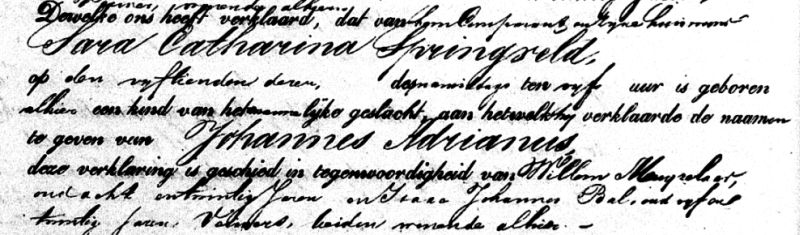 wonende alhier,
Dewelke ons heeft verklaard, dat van hem Comparant en zijne huisvrouw
Sara Catharina Springveld,
op den vyftienden dezer, des namiddags ten vyf uur is geboren
alhier een kind van het mannelijke geslacht, aan hetwelk hij verklaarde de naamen
te geven van Johannes Adrianus,
deze verklaring is geschied in tegenwoordigheid van Willem
oud acht en twintig Jaren en Izaac Johannes Bal, oud vyf en
twintig Jaren, Ververs, beiden wonende alhier. —